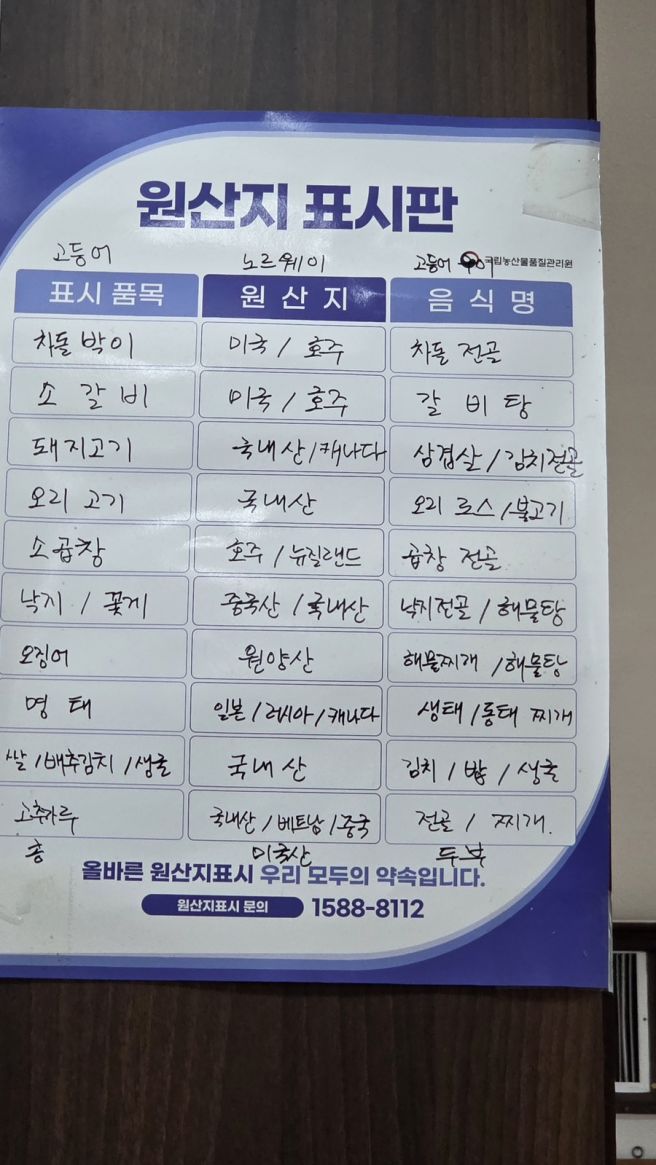 원산지 표시판
고등어 노르웨이 고등어 국립농산물품질관리원
표시 품목 원산지 음식명
차돌박이 미국 / 호주 차돌 전골
소 갈비 미국 / 호주 갈비탕
돼지고기 국내산/캐나다 삼겹살/김치전골
오리 고기 국내산 오리 로스/불고기
소곱창 호주 / 뉴질랜드 곱창 전골
낙지 / 꽃게 중국산 / 국내산 낙지전골 / 해물탕
오징어 원양산 해물찌개 / 해물탕
명태 일본/러시아/캐나다 생태/동태 찌개
쌀/배추김치/생굴 국내산 김치 / 밥 / 생굴
고추가루 국내산/베트남/중국 전골 / 찌개.
콩 미국산 두부
올바른 원산지표시 우리 모두의 약속입니다.
원산지표시 문의 1588-8112